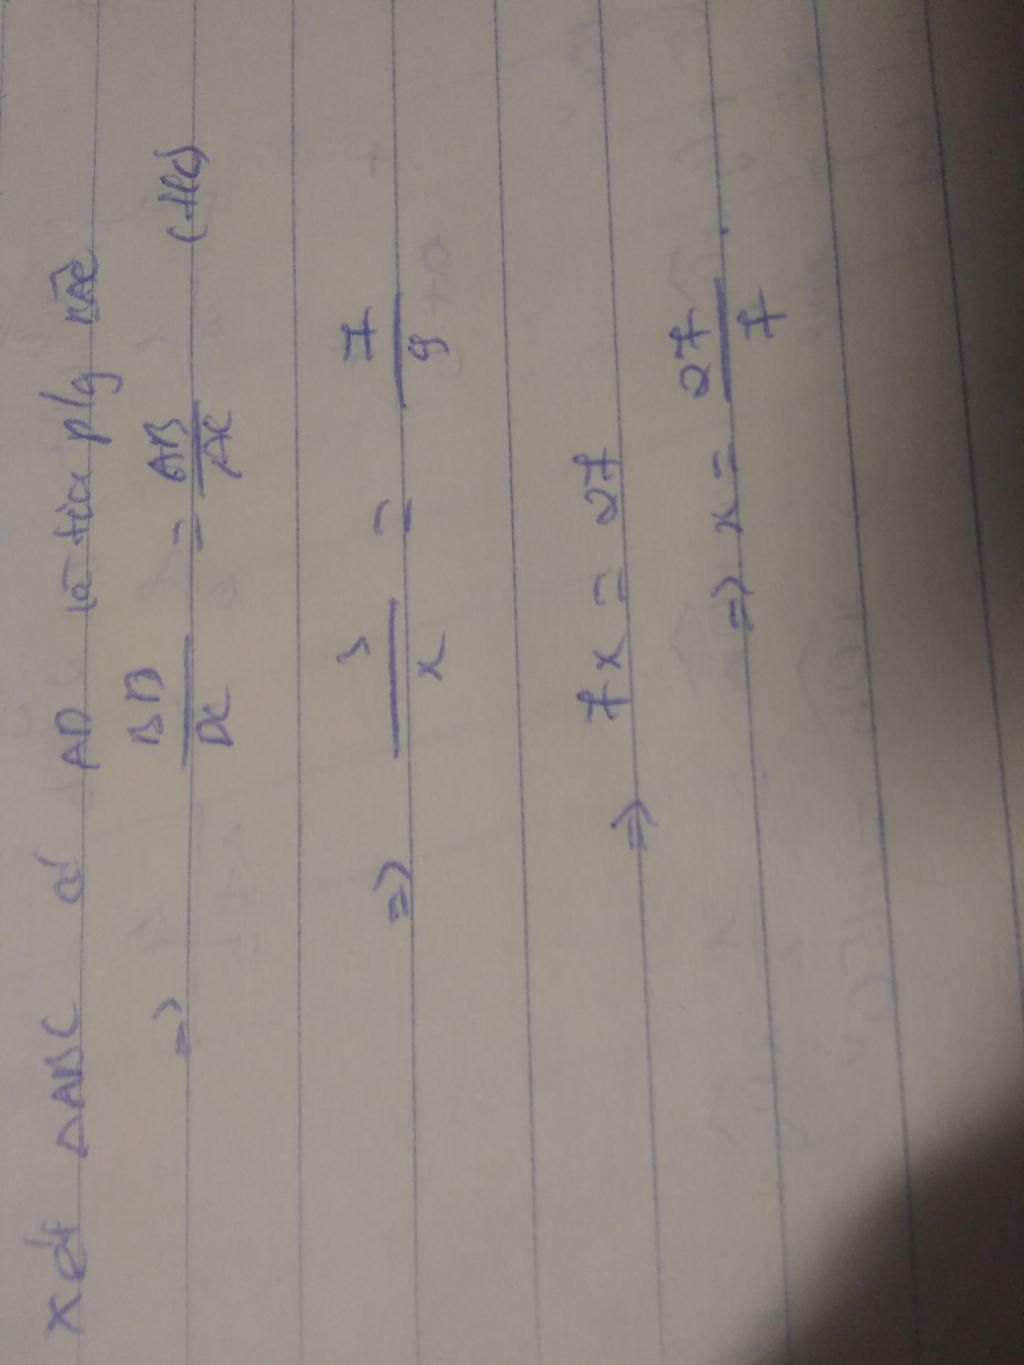 Xét ΔABC có AD là tia p/g BAC
=> BD/DC = AB/AC (t/c)
=> 3/x = 7/9
=> 7x = 27
=> x = 27/7.